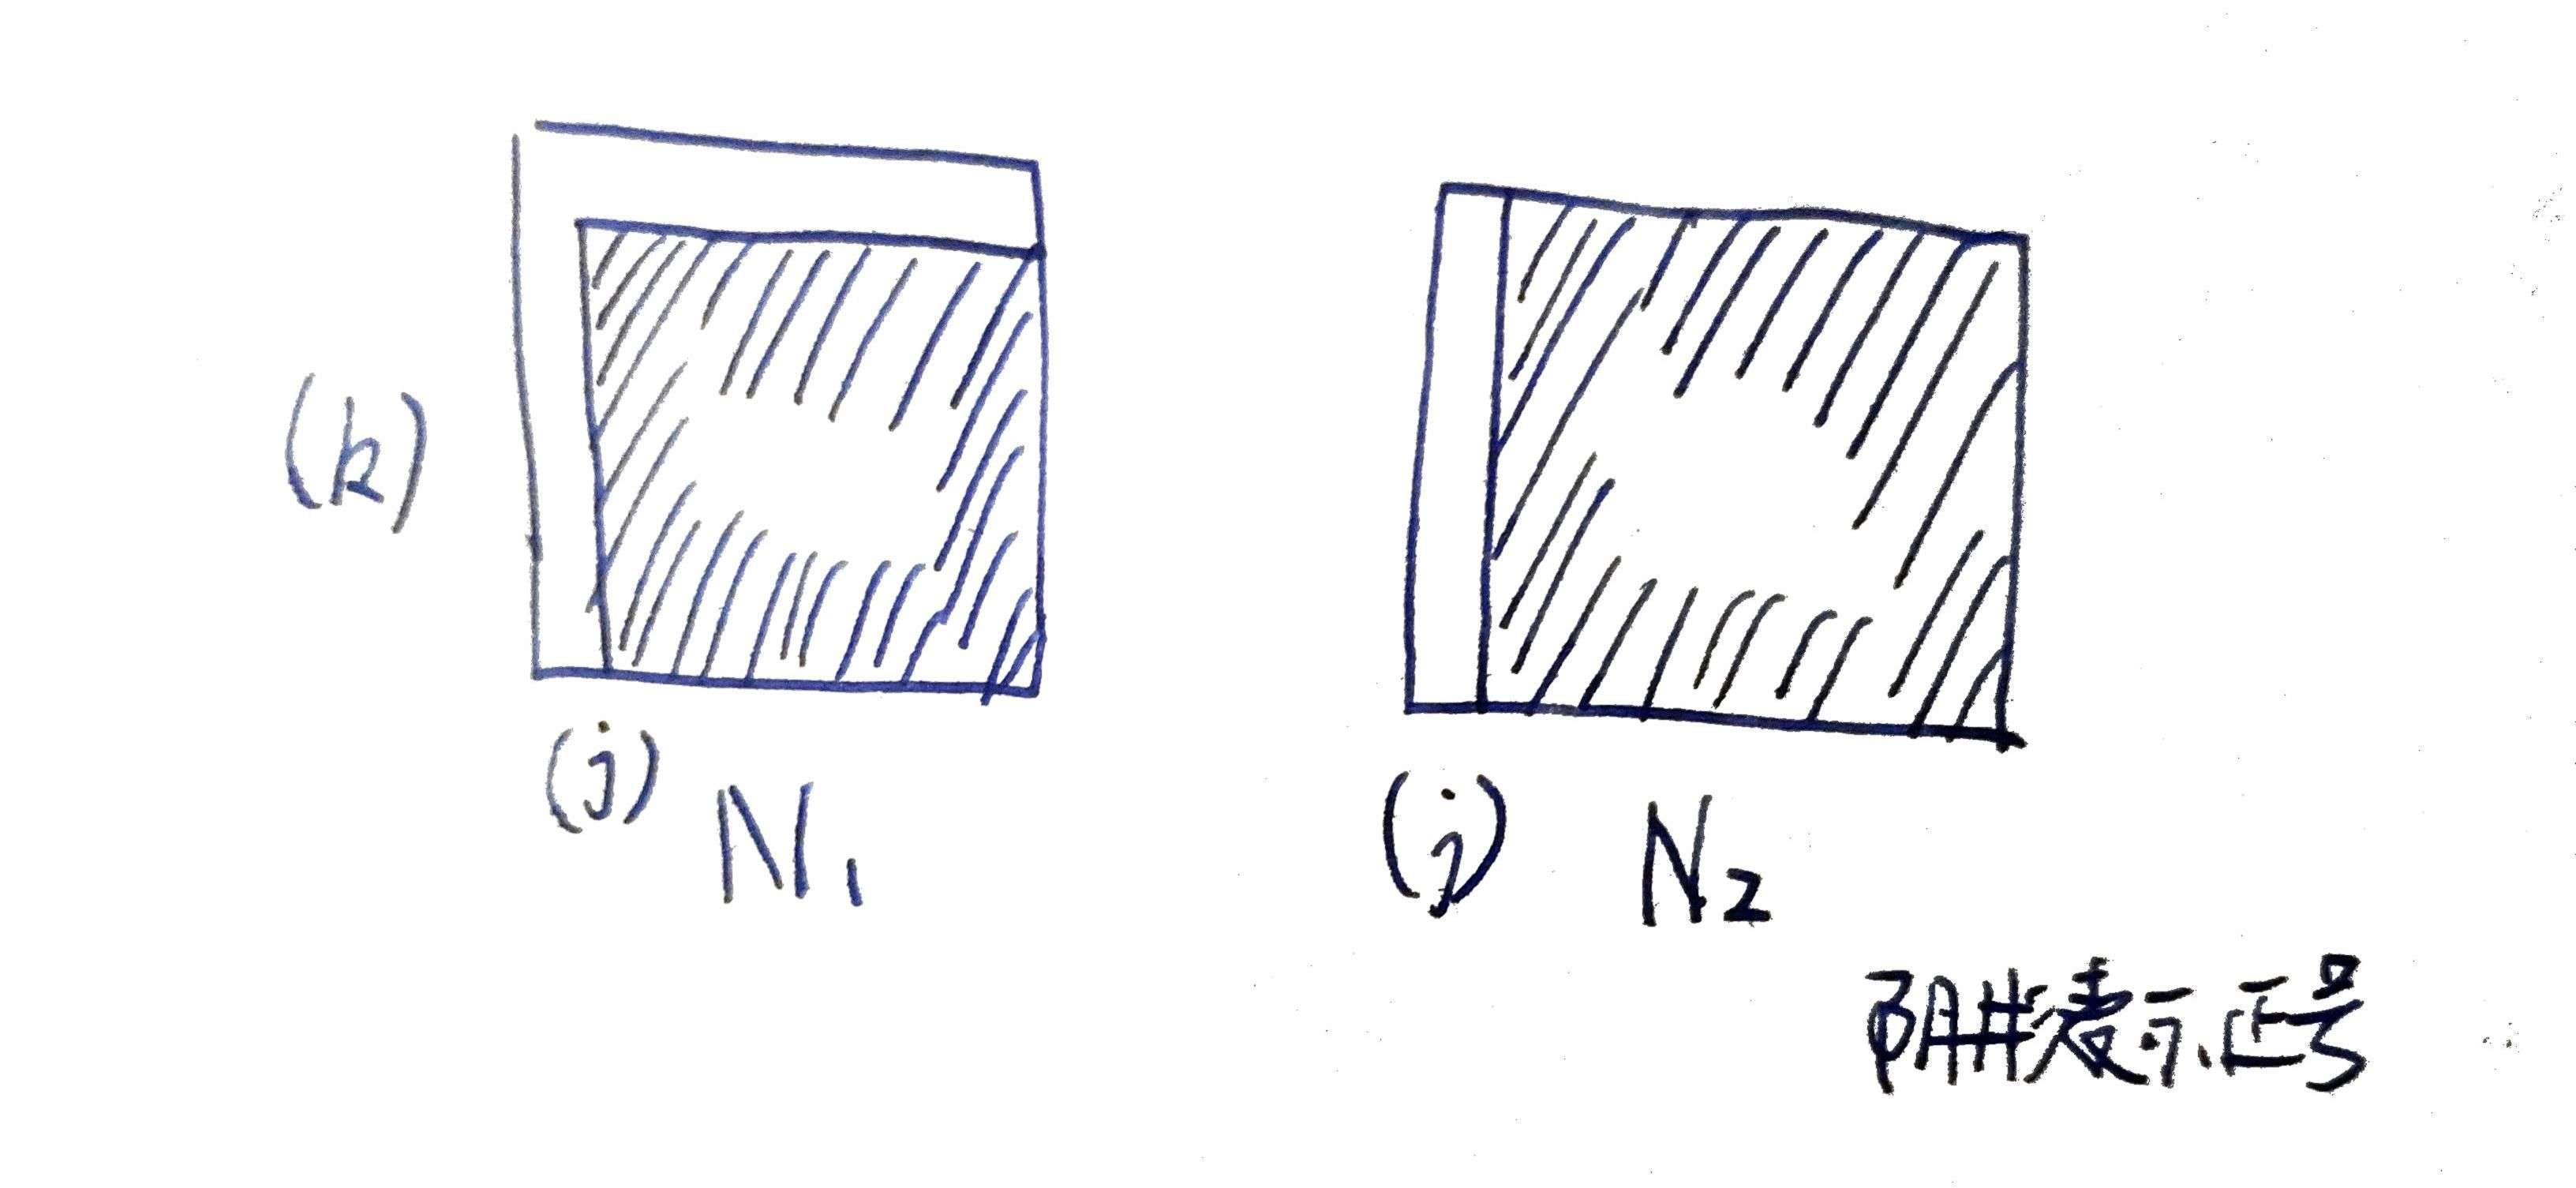 (k)
(j) N₁
(j) N₂
阴井表示正号